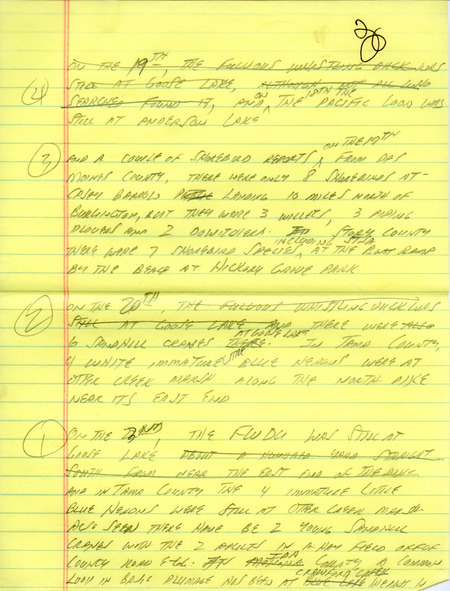 20
ON THE 19TH, THE FULVOUS WHISTLING DUCK WAS
④ STILL AT GOOSE LAKE, ALTHOUGH NOT ALL WHO
SEARCHED FOUND IT, AND ON THE 18TH THE PACIFIC LOON WAS
STILL AT ANDERSON LAKE
ON THE 19TH
③ AND A COUPLE OF SHOREBIRD REPORTS, FROM DES
MOINES COUNTY, THERE WERE ONLY 8 SHOREBIRDS AT
CASEY BARROW LANDING 10 MILES NORTH OF
BURLINGTON, BUT THEY WERE 3 WILLETS, 3 PIPING
PLOVERS AND 2 DOWITCHERS. IN STORY COUNTY
THERE WERE 7 SHOREBIRD SPECIES, INCLUDING AT THE BOAT RAMP
BY THE BEACH AT HICKORY GROVE PARK
ON THE 20TH, THE FULVOUS WHISTLING DUCK WAS
② STILL AT GOOSE LAKE AND THERE WERE ALSO
6 SANDHILL CRANES THERE. AT GOOSE LAKE IN TAMA COUNTY,
4 WHITE IMMATURE LITTLE BLUE HERONS WERE AT
OTTER CREEK MARSH ALONG THE NORTH DIKE
NEAR ITS EAST END
① ON THE THE FUWDU WAS STILL AT
GOOSE LAKE ABOUT A HUNDRED YARDS STRAIGHT
SOUTH FROM NEAR THE EAST END OF THE DIKE
AND IN TAMA COUNTY THE 4 IMMATURE LITTLE
BLUE HERONS WERE STILL AT OTTER CREEK MARSH.
ALSO SEEN THERE HAVE BE 2 YOUNG SANDHILL
CRANES WITH THE 2 ADULTS IN A HAY FIELD OFF OF
COUNTY ROAD E66. IN IDA COUNTY A COMMON
LOON IN BASIC PLUMAGE HAS BEEN AT CRAWFORD CREEK BLUE LAKE